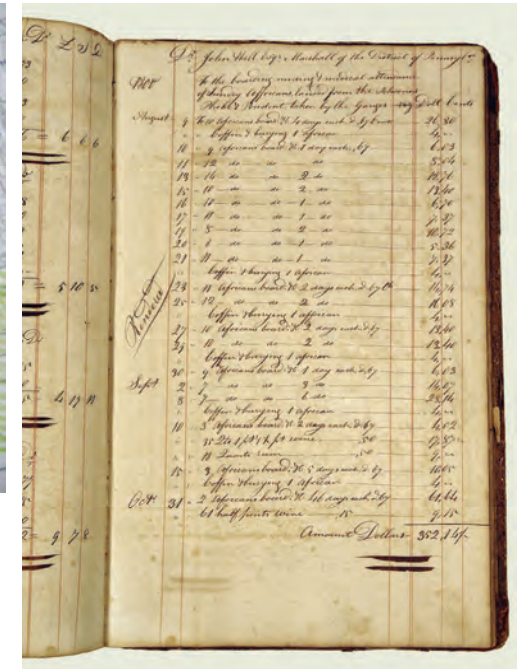 Dr £ S D
6 6 6
5 10 5
4 17 11
9 7 8
Dr John Hall Esqr Marshall of the District of Pennsylva
1800 To the boarding nursing & medical attendance
of sundry Africans, landed from the Schooners
Phebe & Prudent, taken by the Ganges viz Doll Cents
August 9 To 10 Africans board &c 4 days each @ 67 cents 26,80
" Coffin & burying 1 African 4,--
10 - 9 Africans board &c 1 day each, 67 6.03
11 - 12 do do do 8.04
13 - 14 do do 2 do 18,76
15 - 10 do 2 do 13,40
16 - 10 do 1 do 6,70
17 - 11 do 1 do 7.37
19 - 8 do 2 do 10,72
20 - 8 do 1 do 5.36
21 - 11 do do 1 do 7.37
Coffin & burying 1 African 4,--
23 - 11 Africans board &c 2 days each @ 67 Cts 14,74
25 - 12 do 2 do 16,08
Coffin & burying 1 African 4,--
27 - 10 Africans board &c 2 days each @ 67 13,40
29 - 10 do do 2 do 13,40
Coffin & burying 1 African 4,--
30 - 9 Africans board &c 1 day each @ 67 6,03
Rendered
Sept 2 - 7 do do 3 do 14,07
8 - 7 do do 6 do 28,14
Coffin & burying 1 African 4,--
10 - 3 Africans board &c 2 days each @ 67 4,02
wine ,50
18 Quarts ,50 9,--
15 - 3 Africans board &c 5 days each @ 67 10.05
Coffin & burying 1 African 4,--
Octr 31 - 2 Africans board &c 46 days each @ 67 61,64
61 half pints wine 15 9.15
Amount Dollars 352,14